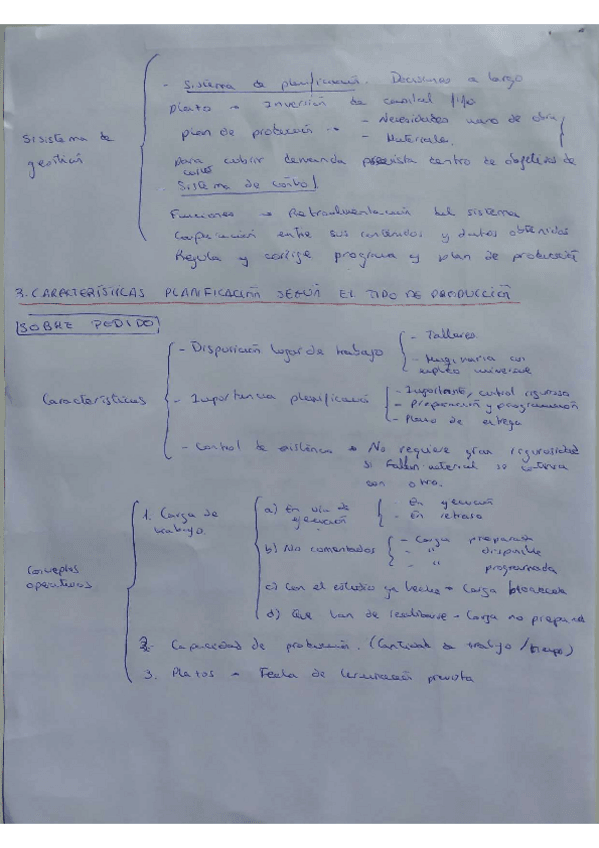 - Sistema de planificación. Decisiones a largo
plazo → Inversión de capital fijo
plan de producción → - Necesidades mano de obra
- Materiales.
Sisistema de
gestión
para cubrir demanda prevista dentro de objetivos de
coste
Sistema de control
Funciones → Retroalimentación del sistema
Comparación entre sus contenidos y datos obtenidos
Regula y corrige programa y plan de producción
3. CARACTERÍSTICAS PLANIFICACIÓN SEGÚN EL TIPO DE PRODUCCIÓN
SOBRE PEDIDO
- Disposición lugar de trabajo
- Talleres
- Maquinaria con
empleo universal
Características
- Importancia planificació
- Importante, control riguroso
- Preparación y programación
- Plazo de entrega
- Control de existencia → No requiere gran rigurosidad
si falta material se continua
con otro.
Conceptos
operativos
1. Carga de
trabajo.
a) En vía de
ejecución
- En ejecución
- En retraso
b) No comenzados
- Carga preparada
- " disponible
- " programada
c) Con el estudio ya hecho → Carga bloqueada
d) Que han de realizarse → Carga no preparada
2. Capacidad de producción. (Cantidad de trabajo / tiempo)
3. Plazos → Fecha de terminación prevista